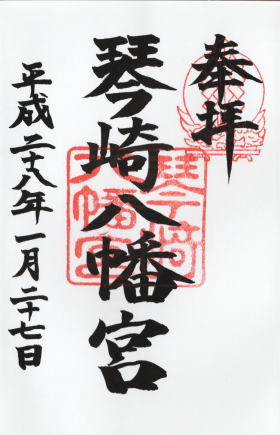 奉拝
琴崎八幡宮
平成二十八年一月二十七日
琴崎
八幡宮